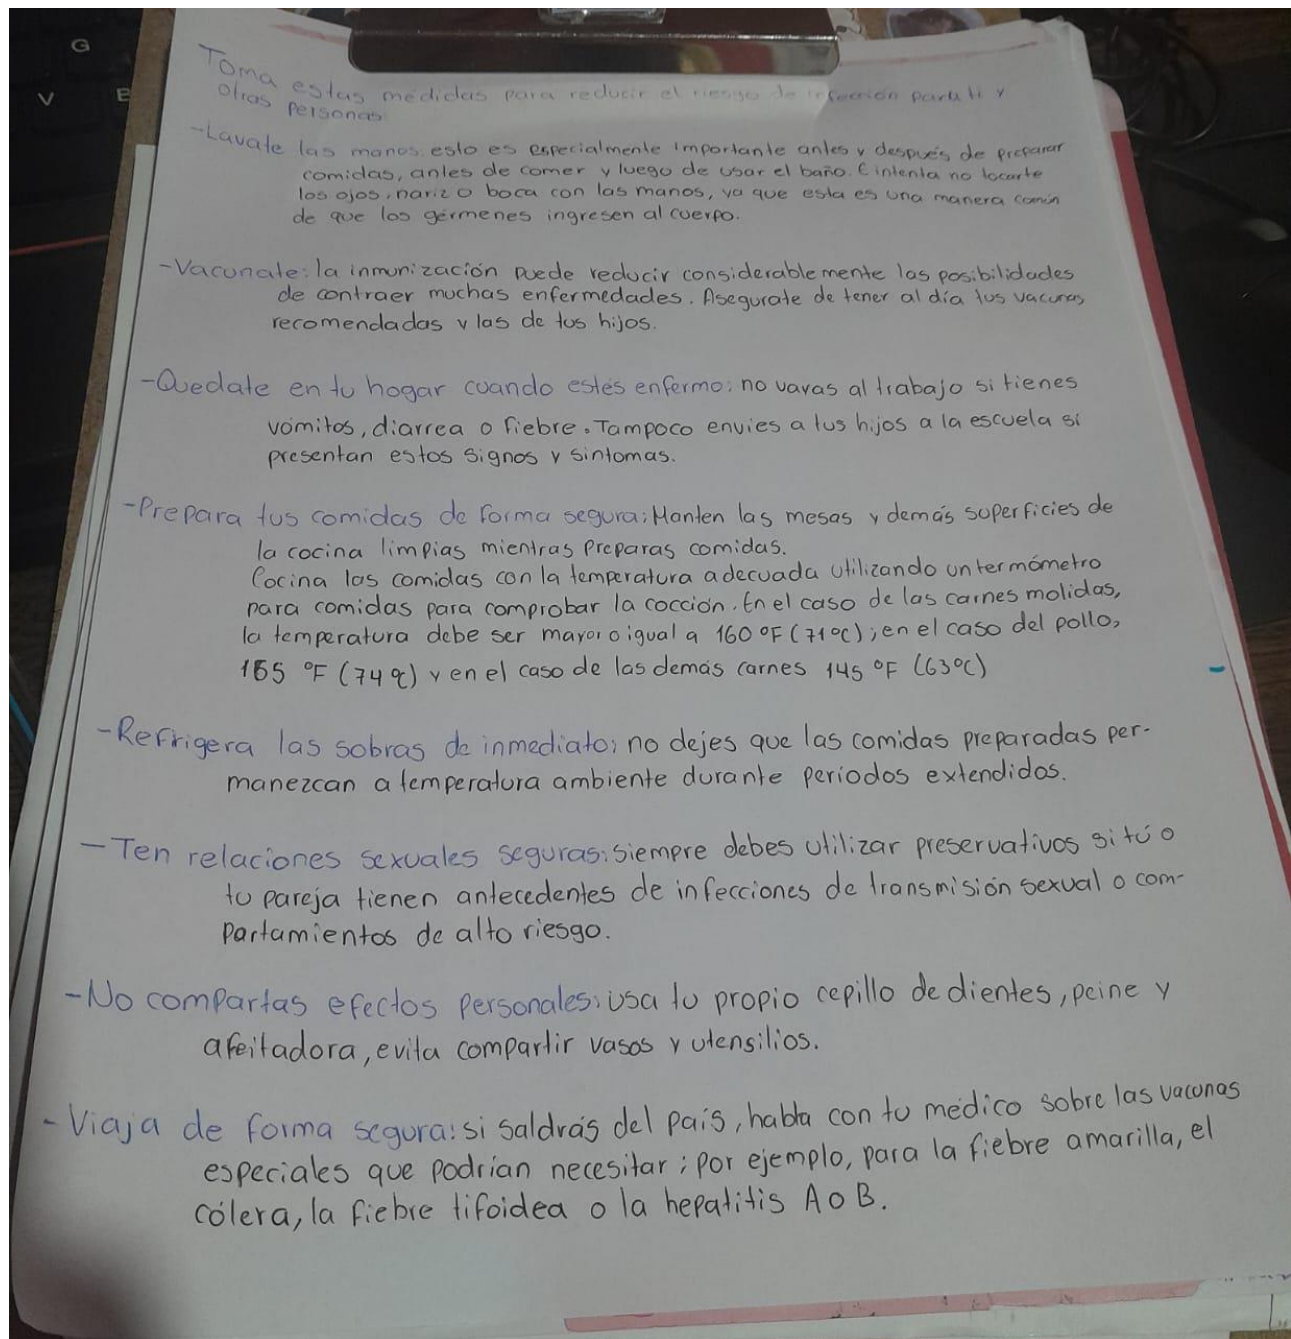 Toma estas medidas para reducir el riesgo de infección para ti y
otras personas
-Lavate las manos: esto es especialmente importante antes y después de preparar
comidas, antes de comer y luego de usar el baño. E intenta no tocarte
los ojos, nariz o boca con las manos, ya que esta es una manera común
de que los gérmenes ingresen al cuerpo.
-Vacunate: la inmunización puede reducir considerablemente las posibilidades
de contraer muchas enfermedades. Asegurate de tener al día tus vacunas
recomendadas y las de tus hijos.
-Quedate en tu hogar cuando estés enfermo: no vayas al trabajo si tienes
vómitos, diarrea o fiebre. Tampoco envies a tus hijos a la escuela si
presentan estos signos y sintomas.
-Prepara tus comidas de forma segura: Manten las mesas y demás superficies de
la cocina limpias mientras preparas comidas.
Cocina las comidas con la temperatura adecuada utilizando un termómetro
para comidas para comprobar la cocción. En el caso de las carnes molidas,
la temperatura debe ser mayor o igual a 160 °F (71°C); en el caso del pollo,
165 °F (74°C) y en el caso de las demás carnes 145 °F (63°C)
-Refrigera las sobras de inmediato: no dejes que las comidas preparadas per-
manezcan a temperatura ambiente durante períodos extendidos.
-Ten relaciones sexuales seguras: siempre debes utilizar preservativos si tú o
tu pareja tienen antecedentes de infecciones de transmisión sexual o com-
partamientos de alto riesgo.
-No compartas efectos personales: usa tu propio cepillo de dientes, peine y
afeitadora, evita compartir vasos y utensilios.
-Viaja de forma segura: si saldrás del país, habla con tu médico sobre las vacunas
especiales que podrían necesitar; por ejemplo, para la fiebre amarilla, el
cólera, la fiebre tifoidea o la hepatitis A o B.
G
V
B